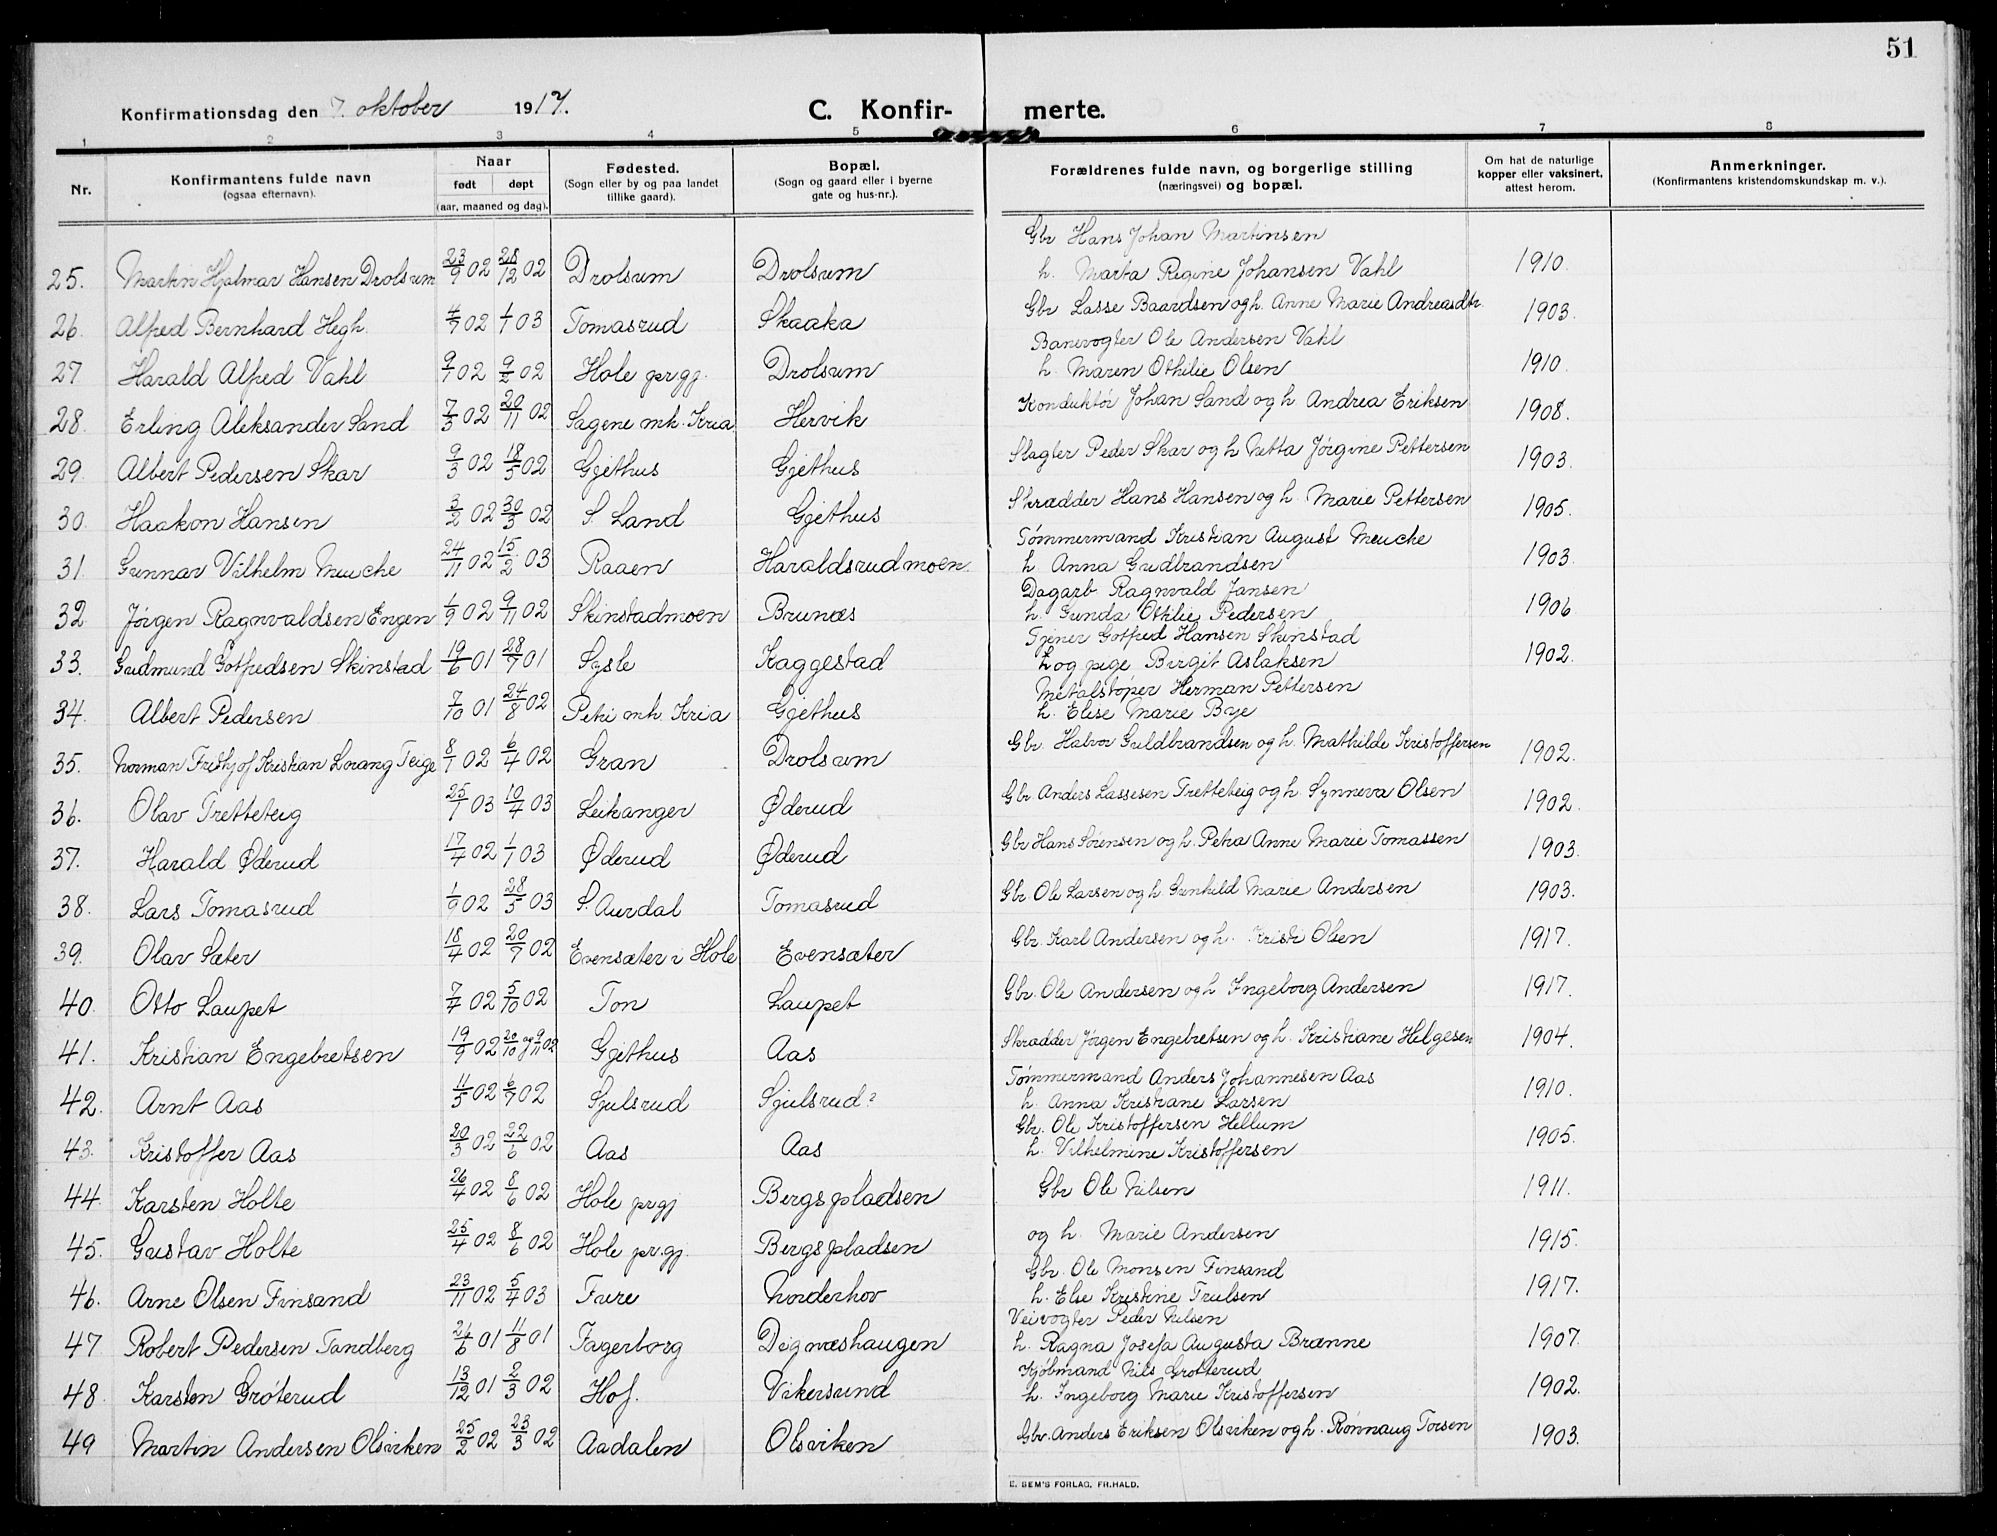 51
Konfirmationsdag den 7. oktober 1917. C. Konfirmerte.
1 2 3 4 5 6 7 8
Nr. Konfirmantens fulde navn (ogsaa efternavn). Naar født døpt (aar, maaned og dag). Fødested. (Sogn eller by og paa landet tillike gaard). Bopæl. (Sogn og gaard eller i byerne gate og hus-nr.). Forældrenes fulde navn, og borgerlige stilling (næringsvei) og bopæl. Om hat de naturlige kopper eller vaksinert, attest herom. Anmerkninger. (Konfirmantens kristendomskundskap m. v.).
25. Martin Hjalmar Hansen Drolsum 23/9 02 28/12 02 Drolsum Drolsum Gbr Hans Johan Martinsen h. Marta Regine Johansen Vahl 1910.
26. Alfred Bernhard Hegh. 4/7 02 1/1 03 Tomasrud Skaaka Gbr Lasse Baardsen og h. Anne Marie Andreasdtr. 1903.
27 Harald Alfred Vahl 9/1 02 9/2 02 Hole pr.gj. Drolsum Banevogter Ole Andersen Vahl h. Maren Othilie Olsen 1910.
28. Erling Aleksander Sand 7/3 02 20/11 02 Sagene mh. Kria. Hervik Konduktør Johan Sand og h Andrea Eriksen 1908.
29. Albert Pedersen Skar 9/3 02 18/5 02 Gjethus Gjethus Slagter Peder Skar og h Netta Jørgine Pettersen 1903.
30. Haakon Hansen 3/2 02 30/3 02 S. Land Gjethus Skrædder Hans Hansen og h. Marie Pettersen 1905.
31. Gunnar Vilhelm Meuche 24/11 02 15/2 03 Raaen Haraldsrudmoen. Tømmermand Kristian August Meuche h. Anna Gudbrandsen 1903.
32 Jørgen Ragnvaldsen Engen 1/9 02 9/11 02 Skinstadmoen Brunæs Dagarb Ragnvald Jansen h. Gunda Othilie Pedersen 1906
33. Gudmund Gotfredsen Skinstad 19/6 01 28/7 01 Sysle Kaggestad Tjener Gotfred Hansen Skinstad og pige Birgit Aslaksen 1902.
34. Albert Pedersen 7/10 01 24/8 02 Petri mh. Kria Gjethus Metalstøper Herman Pettersen h. Elise Marie Bye
35. Norman Fridhjof Kristian Lorang Teige 8/1 02 6/4 02 Gran Drolsum Gbr. Halvor Guldbrandsen og h. Mathilde Kristoffersen 1902.
36. Olav Tretteteig 25/1 03 10/4 03 Leikanger Øderud Gbr Anders Lassesen Tretteteig og h. Synneva Olsen 1902.
37. Harald Øderud 17/4 02 1/1 03 Øderud Øderud Gbr Hans Sørensen og h. Petra Anne Marie Tomassen 1903.
38. Lars Tomasrud 1/9 02 28/5 03 S. Aurdal Tomasrud Gbr. Ole Larsen og h. Gunhild Marie Andersen 1903.
39. Olav Sæter 18/4 02 20/7 02 Evensæter i Hole Evensæter Gbr. Karl Andersen og h. Kristi Olsen 1917.
40. Otto Laupet 7/4 02 5/10 02 Ton Laupet Gbr. Ole Andersen og h Ingeborg Andersen 1917.
41. Kristian Engebretsen 19/9 02 20/10 og 9/11 02 Gjethus Aas Skrædder Jørgen Engebretsen og h. Kristiane Helgesen 1904.
42. Arnt Aas 11/5 02 6/7 02 Sjulsrud Sjulsrud? Tømmermand Anders Johannesen Aas h. Anna Kristiane Larsen 1910.
43. Kristoffer Aas 20/3 02 22/6 02 Aas Aas Gbr. Ole Kristoffersen Hellum h. Vilhelmine Kristoffersen 1905.
44. Karsten Holte 26/4 02 8/6 02 Hole pr.gj Bergspladsen Gbr Ole Nilsen 1911.
45. Gustav Holte 25/4 02 8/6 02 Hole pr.gj. Bergspladsen og h. Marie Andersen 1915.
46. Arne Olsen Finsand 23/11 02 5/4 03 Fure Norderhov Gbr. Ole Monsen Finsand h. Else Kristine Trulsen 1917.
47 Robert Pedersen Tandberg 24/6 01 11/8 01 Fagerborg Dignæshaugen Veivogter Peder Nilsen h. Ragna Josefa Augusta Brænne 1907.
48. Karsten Grøterud 13/12 01 2/3 02 Hof. Vikersund Kjøbmand Nils Grøtterud h. Ingeborg Marie Kristoffersen 1902.
49 Martin Andersen Olsviken 25/2 02 23/3 02 Aadalen Olsviken Gbr. Anders Eriksen Olsviken og h. Rønnaug Torsen 1903.
E. SEM'S FORLAG, FR.HALD.